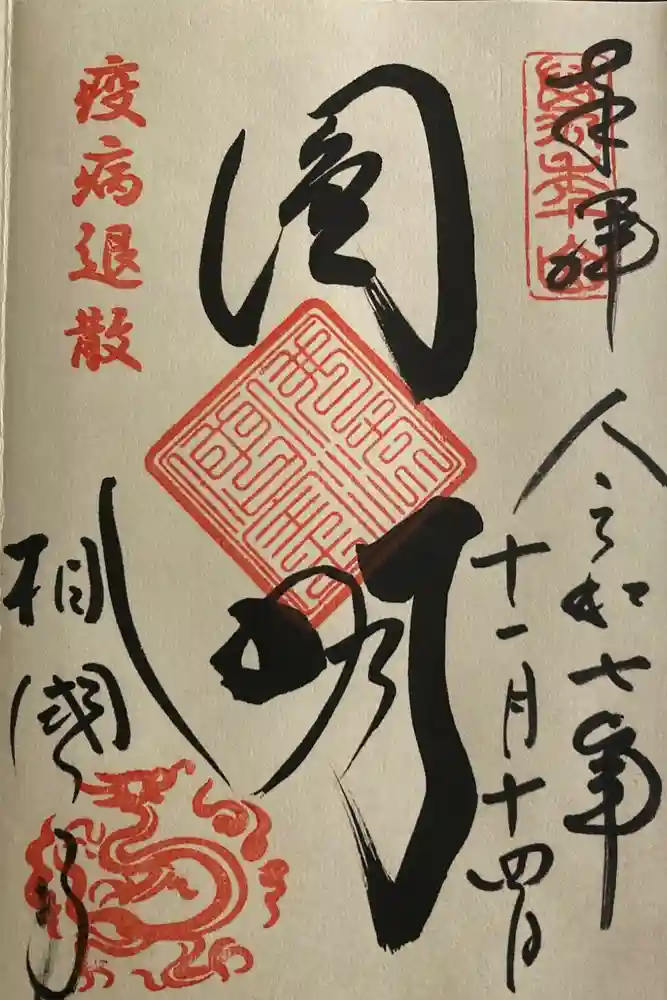 奉拝
令和七年
十一月十四日
圓明
疫病退散
相國寺